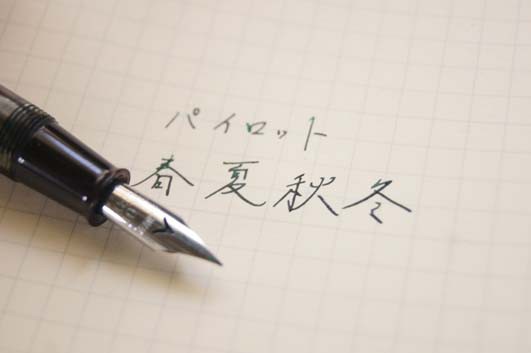 パイロット
春夏秋冬